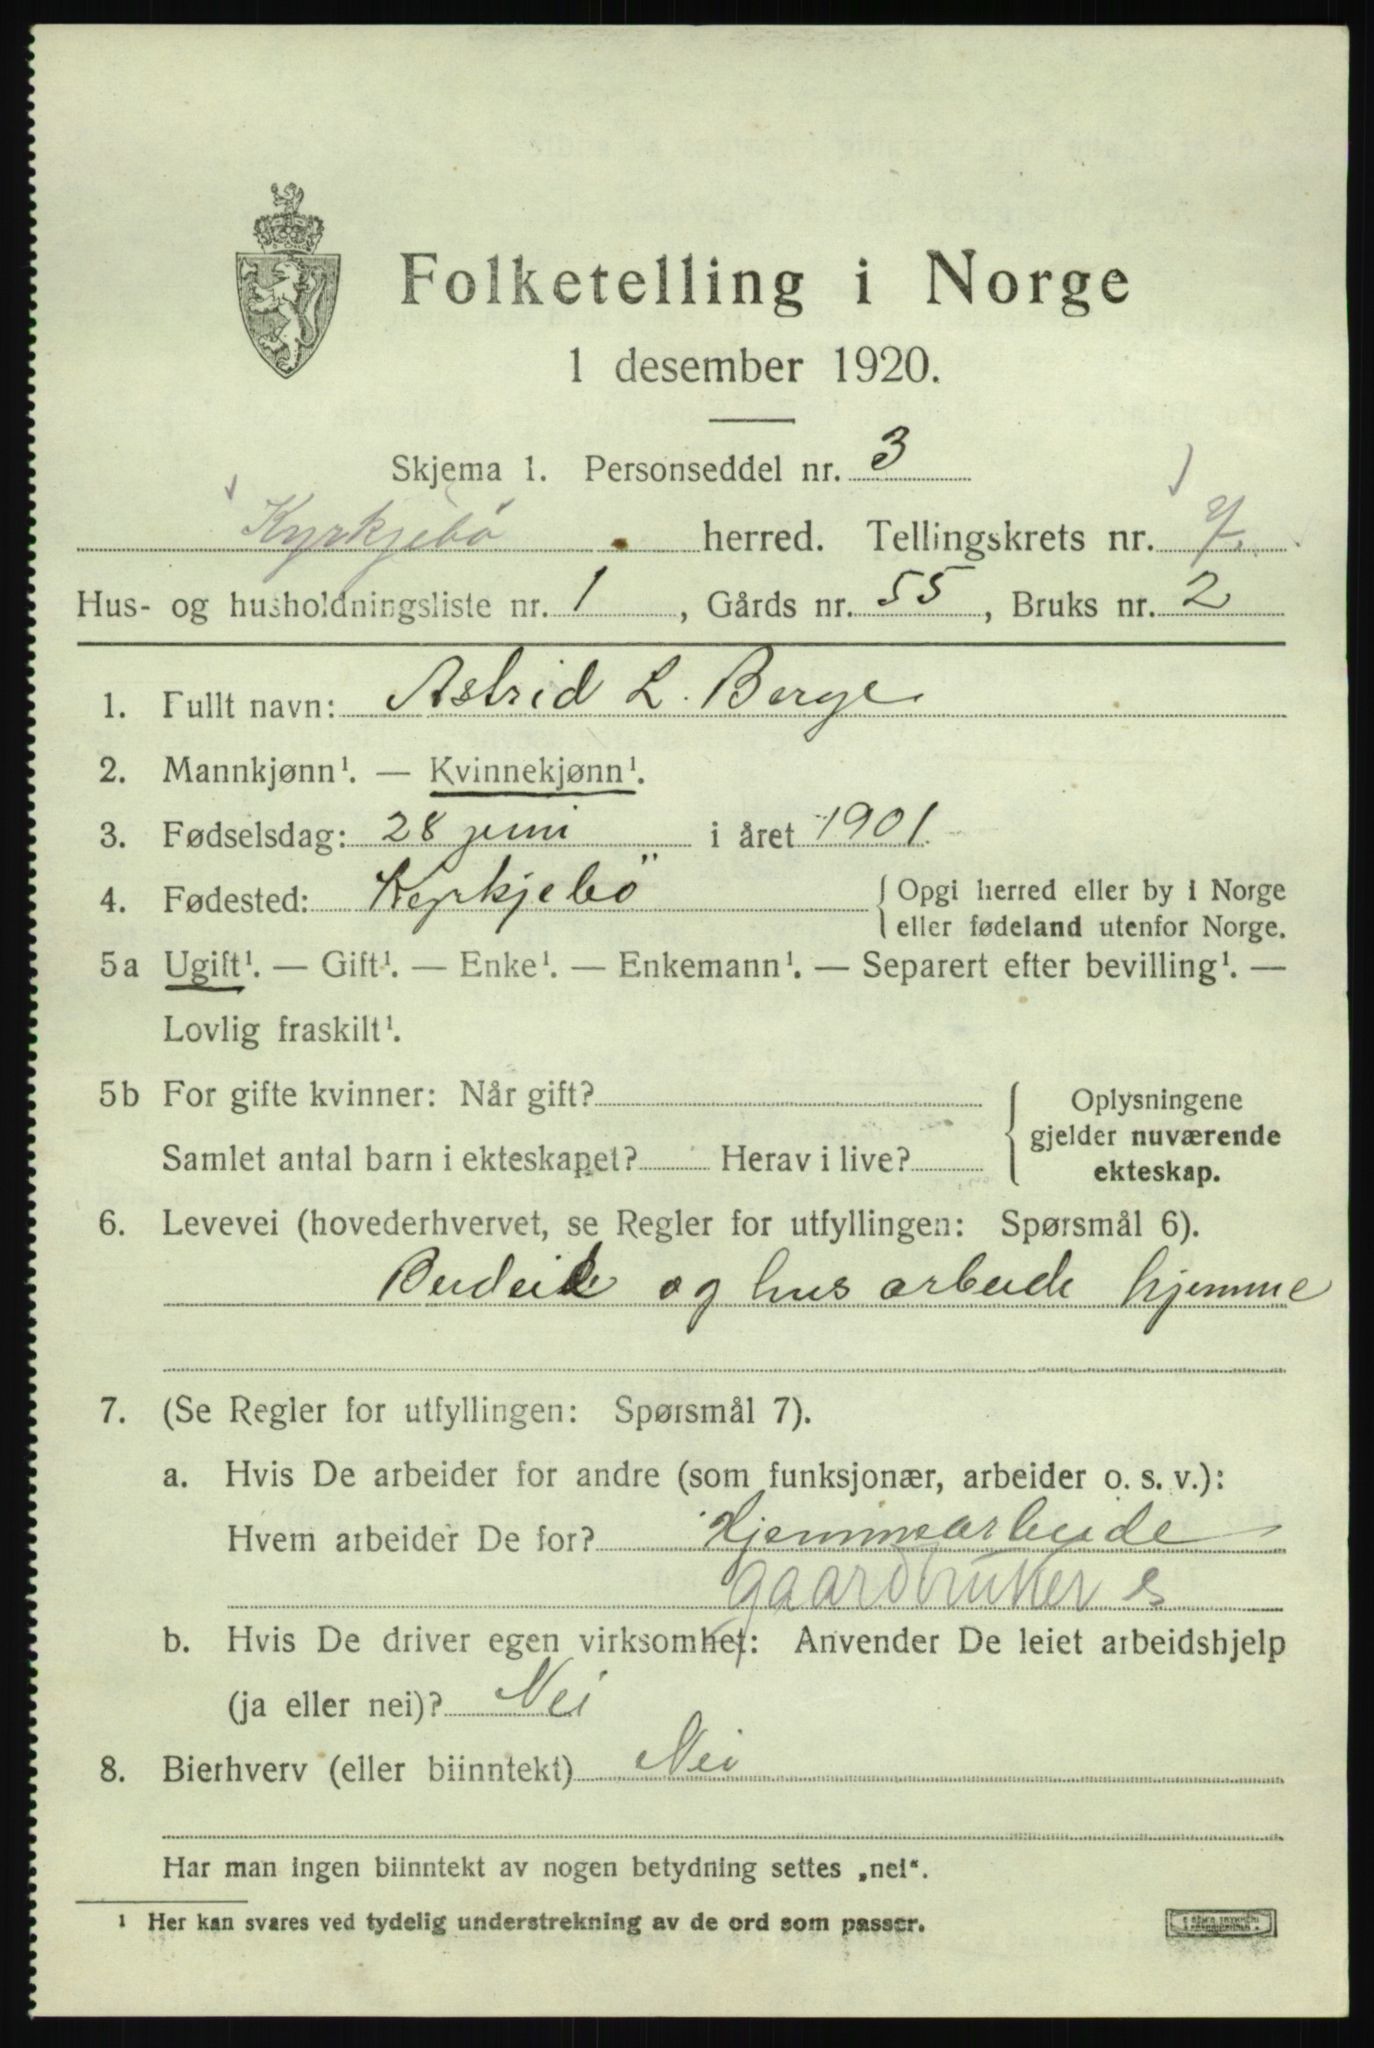 Folketelling i Norge
1 desember 1920.
Skjema 1. Personseddel nr. 3
Kyrkjebö herred. Tellingskrets nr. 7.
Hus- og husholdningsliste nr. 1, Gårds nr. 55, Bruks nr. 2
1. Fullt navn: Astrid L. Berge
2. Mannkjønn¹. — Kvinnekjønn¹.
3. Fødselsdag: 28 juni i året 1901.
4. Fødested: Kyrkjebö { Opgi herred eller by i Norge
eller fødeland utenfor Norge.
5a Ugift¹. — Gift¹. — Enke¹. — Enkemann¹. — Separert efter bevilling¹. —
Lovlig fraskilt¹.
5b For gifte kvinner: Når gift?
Samlet antal barn i ekteskapet? Herav i live?
{ Oplysningene
gjelder nuværende
ekteskap.
6. Levevei (hovederhvervet, se Regler for utfyllingen: Spørsmål 6).
Budeie og hus arbeide hjemme
7. (Se Regler for utfyllingen: Spørsmål 7).
a. Hvis De arbeider for andre (som funksjonær, arbeider o. s. v.):
Hvem arbeider De for? Hjemmearbeide
gaardbruker s
b. Hvis De driver egen virksomhet: Anvender De leiet arbeidshjelp
(ja eller nei)? Nei
8. Bierhverv (eller biinntekt) Nei
Har man ingen biinntekt av nogen betydning settes „nei“.
¹ Her kan svares ved tydelig understrekning av de ord som passer.